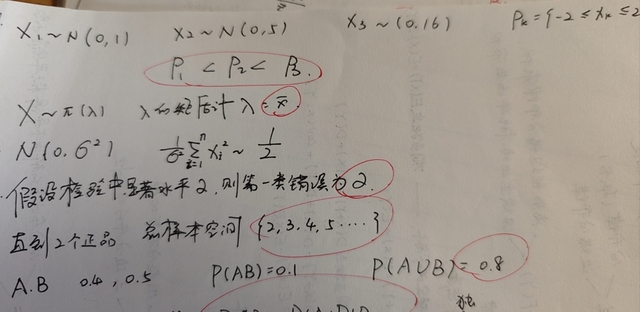 X₁~N(0,1) X₂~N(0,5) X₃~(0.16) Pₖ={-2≤Xₖ≤2
P₁<P₂<P₃.
X~π(λ) λ的矩估计λ=x̄
N(0,6²) 1/6² ∑ᵢ₌₁ⁿ Xᵢ²~ 1/2
假设检验中显著水平2,则第一类错误为2.
直到2个正品 总样本空间 {2,3,4,5····}
A.B 0.4,0.5 P(AB)=0.1 P(AUB)=0.8